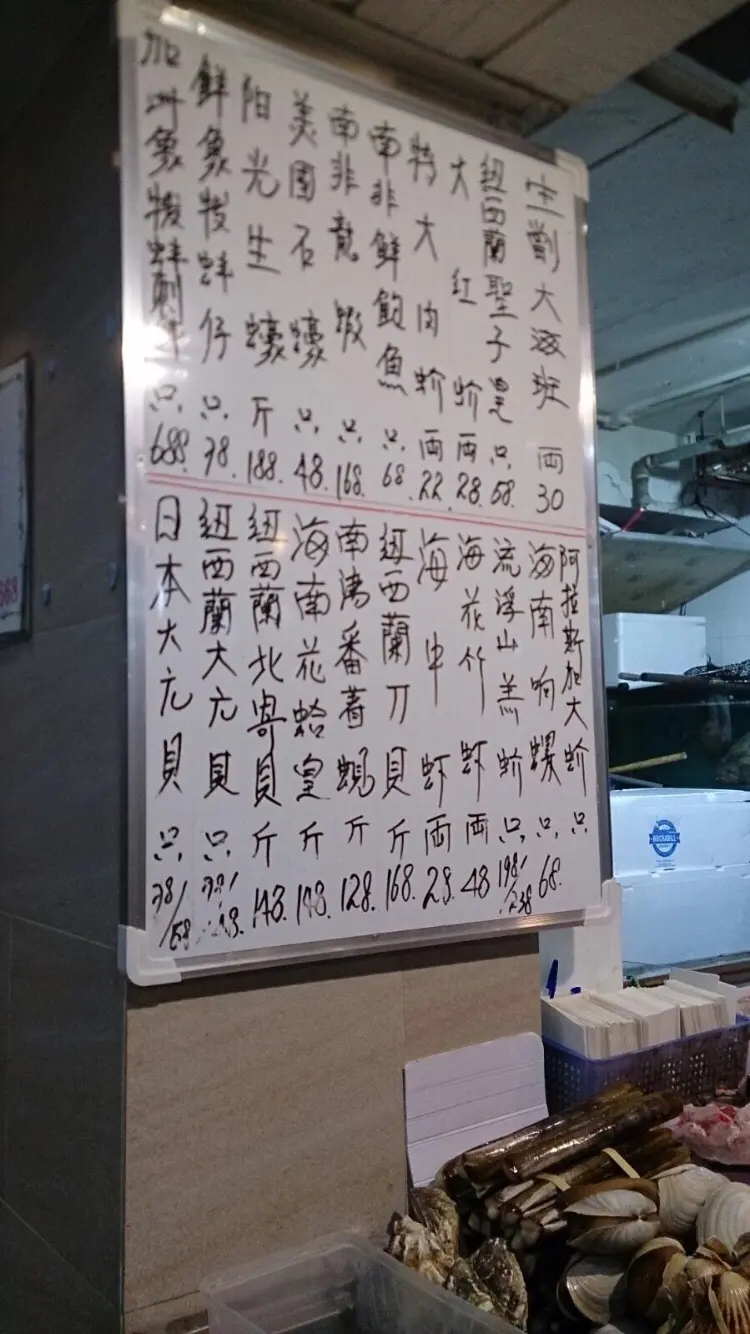 生劏大海班 両30
紐西蘭聖子皇 只68
大紅蚧 両28.
特大肉蚧 両22.
南非鮮鲍魚 只68.
南非龍蝦 只168.
美國石蠔 只48.
阳光生蠔 斤188.
鮮象拔蚌仔 只38.
加州象拔蚌刺身 只688.
阿拉斯加大蚧 只
海南响螺 只68.
流浮山羔蚧 只198/238
海花竹虾 両48
海中虾 両28.
紐西蘭刀貝 斤168.
南澳番薯蜆 斤128.
海南花蛤皇 斤148.
紐西蘭北寄貝 斤148.
紐西蘭大元貝 只38/48.
日本大元貝 只38/58